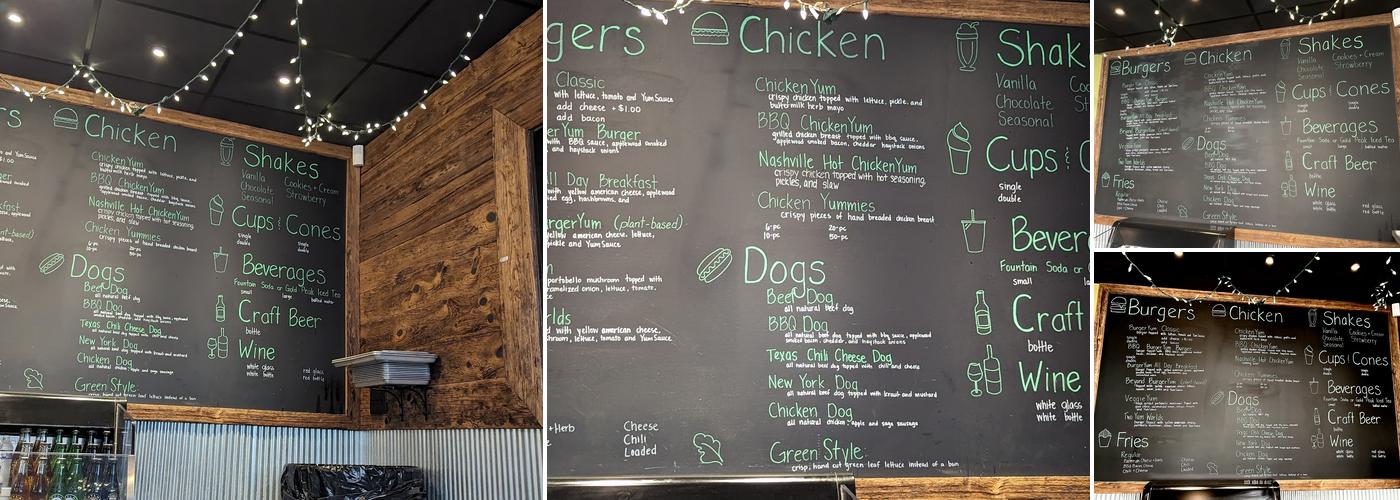 Chicken
Chicken Yum
crispy chicken topped with lettuce, pickle, and
BBQ ChickenYum
Nashville Hot ChickenYum
crispy chicken topped with hot seasoning.
pickles, and slaw
Chicken Yummies
crispy pieces of hand breaded chicken breast
Dogs
Beef Dog
all natural beef dog
BBQ Dog
Texas Chili Cheese Dog
New York Dog
Chicken Dog
Green Style:
Shakes
Vanilla Cookies + Cream
Chocolate Strawberry
Seasonal
Cups & Cones
single single
double double
Beverages
Fountain Soda or Gold Peak Iced Tea
small large bottled water
Craft Beer
bottle
Wine
white glass red glass
white bottle red bottle
gers
Classic
with lettuce, tomato and YumSauce
add cheese +$1.00
add bacon
erYum Burger
with BBQ sauce, applewood smoked
and haystack onions
All Day Breakfast
with yellow american cheese, applewood
ed egg, hashbrowns, and
rgerYum (plant-based)
yellow american cheese, lettuce,
pickle and YumSauce
portobello mushroom topped with
ramelized onion, lettuce, tomato.
rlds
d with yellow american cheese,
hroom, lettuce, tomato and YumSauce
+Herb
Cheese
Chili
Loaded
Chicken
ChickenYum
crispy chicken topped with lettuce, pickle, and
buttermilk herb mayo
BBQ ChickenYum
grilled chicken breast topped with bbq sauce,
applewood smoked bacon, cheddar haystack onions
Nashville Hot ChickenYum
crispy chicken topped with hot seasoning.
pickles, and slaw
Chicken Yummies
crispy pieces of hand breaded chicken breast
6-pc 20-pc
10-pc 50-pc
Dogs
Beef Dog
all natural beef dog
BBQ Dog
all natural beef dog topped with bbq sauce, applewood
smoked bacon, cheddar, and haystack onions
Texas Chili Cheese Dog
all natural beef dog topped with chili and cheese
New York Dog
all natural beef dog topped with kraut and mustard
Chicken Dog
all natural chicken, apple and sage sausage
Green Style:
crisp, hand cut green leaf lettuce instead of a bun
Shak
Vanilla
Chocolate
Seasonal
Cups & C
single
double
Bever
Fountain Soda or
small
Craft
bottle
Wine
white glass
white bottle
Burgers
Fries
Regular
Chicken
Chicken Yum
BBQ ChickenYum
Nashville Hot ChickenYum
Chicken Yummies
Dogs
Texas Chili Cheese Dog
New York Dog
Chicken Dog
Green Style
Shakes
Vanilla Cookies + Cream
Chocolate Strawberry
Seasonal
Cups & Cones
Beverages
Fountain Soda or Gold Peak Iced Tea
Craft Beer
Wine
Burgers
BurgerYum Classic
BBQ BurgerYum Burger
BurgerYum All Day Breakfast
Beyond BurgerYum (plant-based)
Veggie Yum
Two Yum Worlds
Fries
Regular
Chicken
ChickenYum
BBQ ChickenYum
Nashville Hot ChickenYum
Chicken Yummies
Dogs
Texas Chili Cheese Dog
New York Dog
Chicken Dog
Green Style
Shakes
Vanilla Cookies + Cream
Chocolate Strawberry
Seasonal
Cups & Cones
Beverages
Fountain Soda or Gold Peak Iced Tea
Craft Beer
bottle
Wine